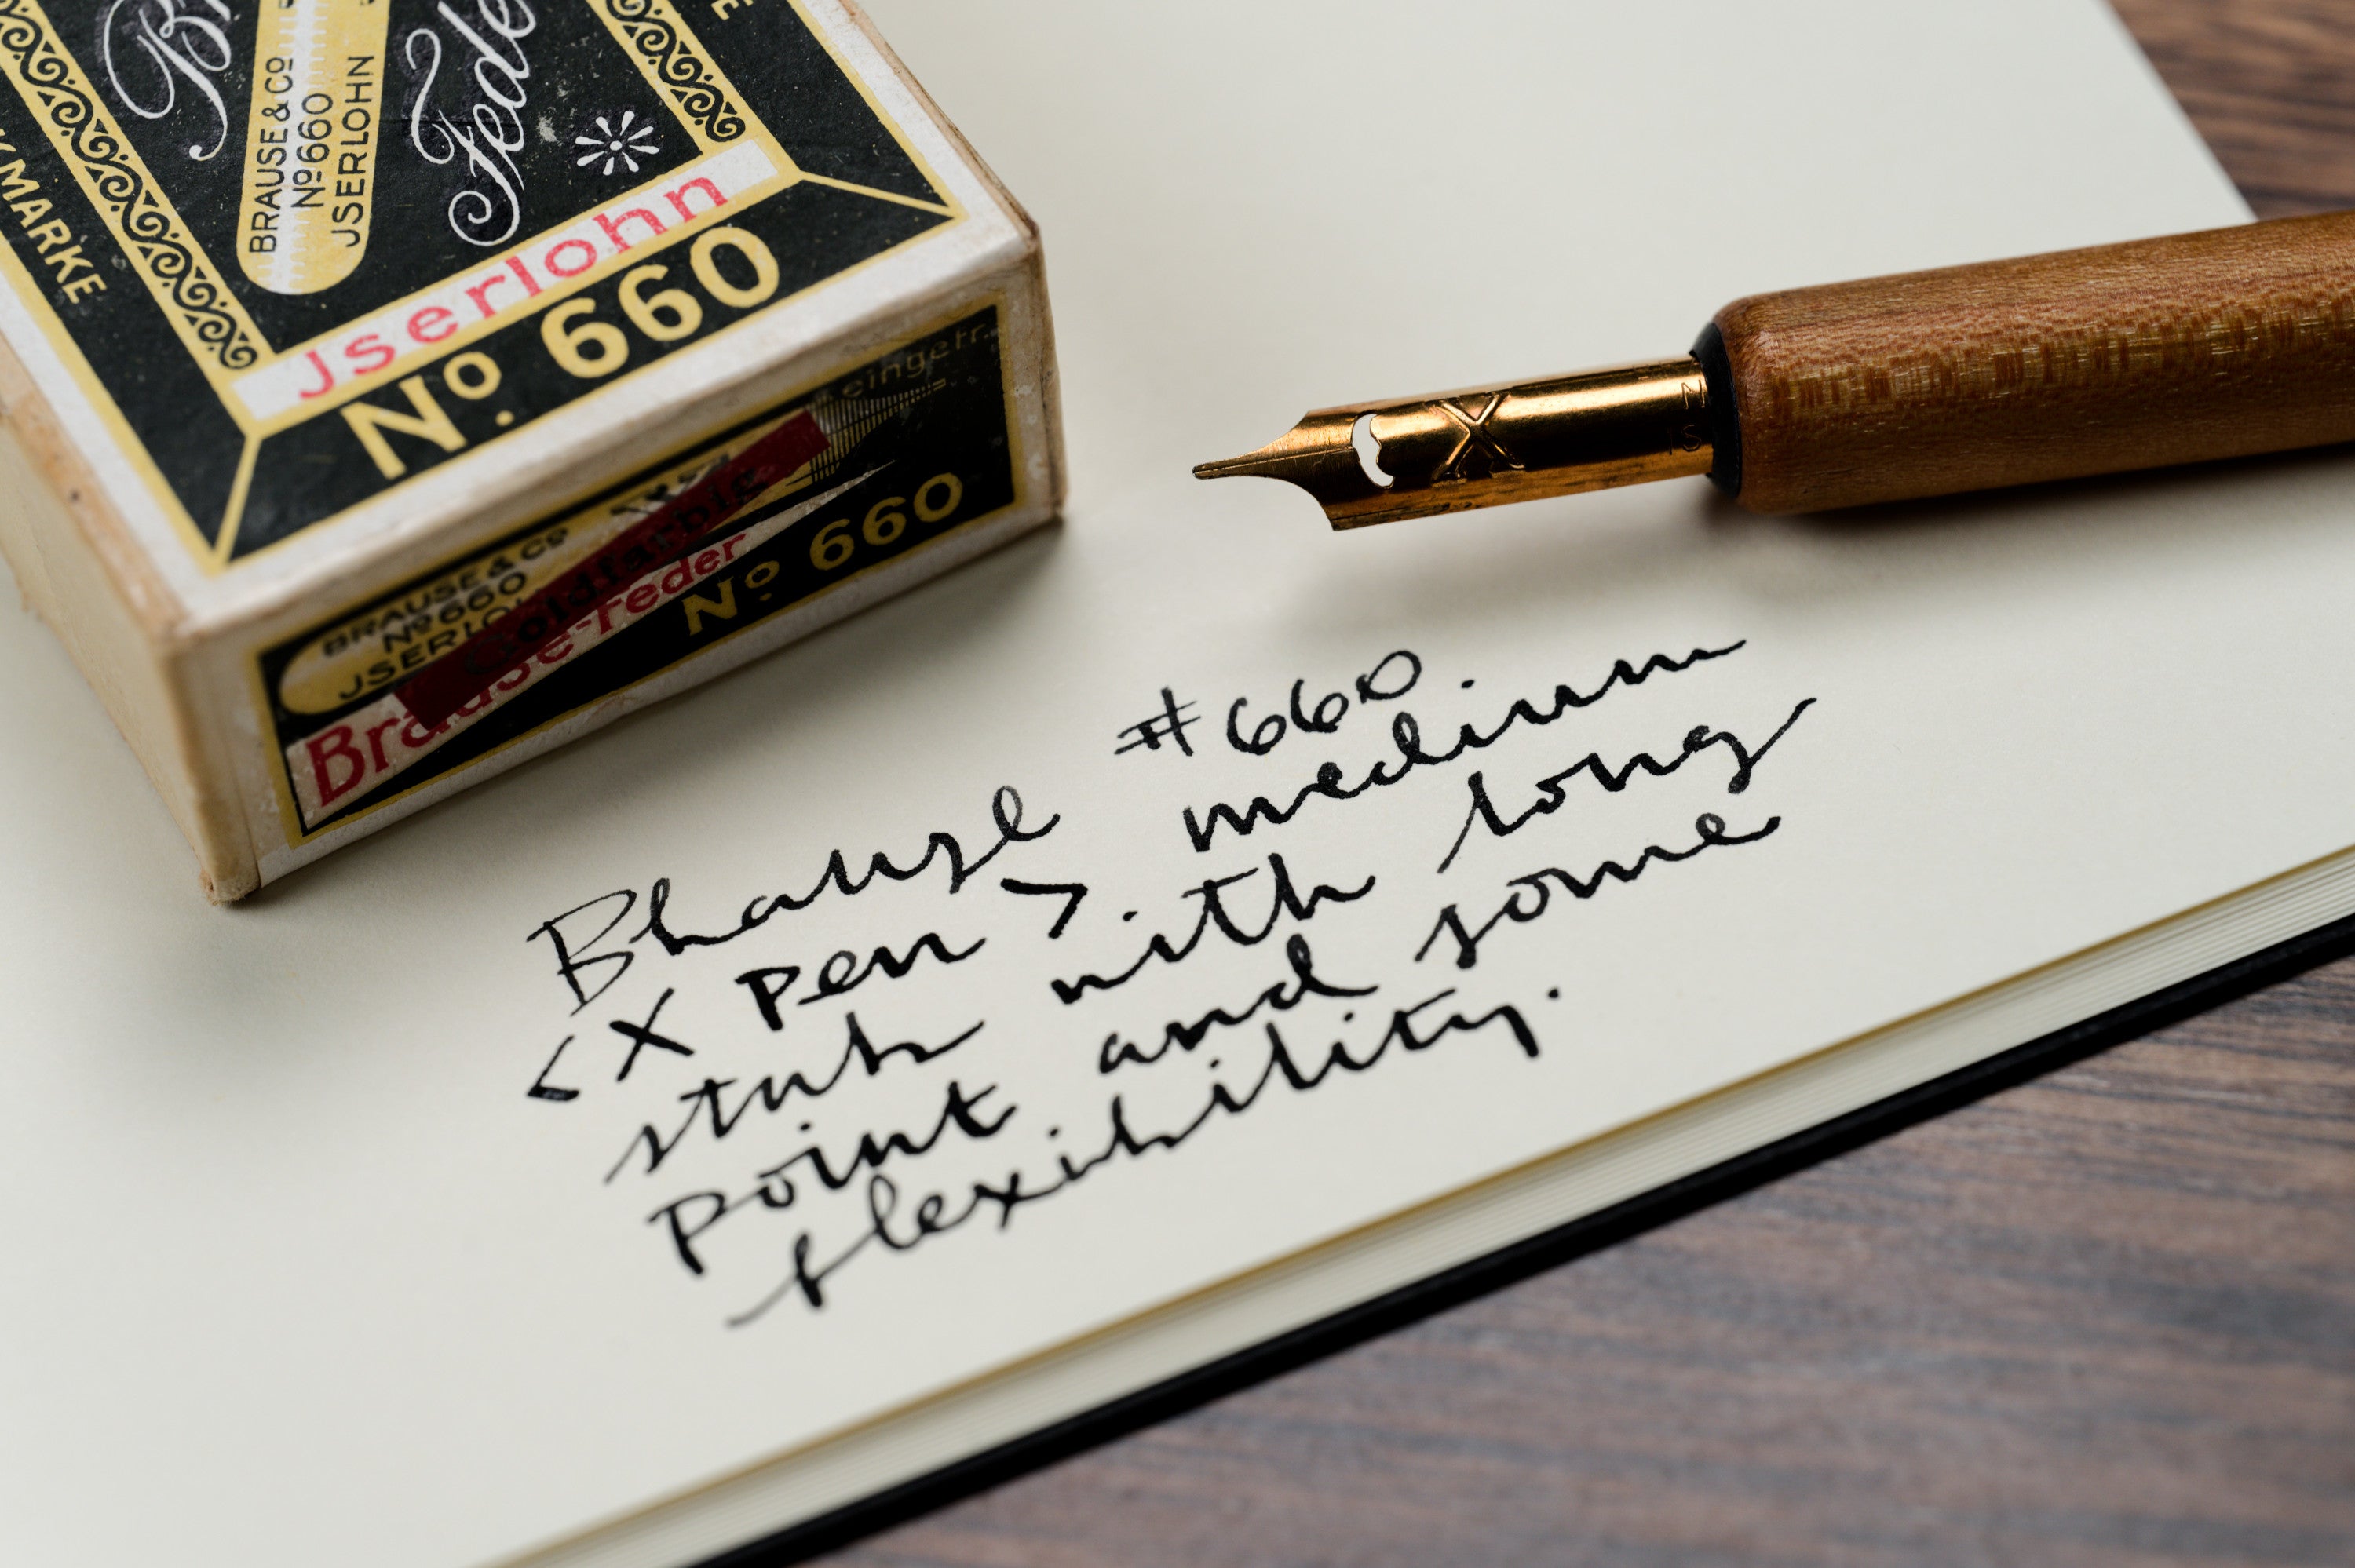 BRAUSE & Cº
Nº 660
JSERLOHN
Jserlohn
Nº. 660
MARKE
eingetr.
BRAUSE & Cº
Nº 660
Goldfarbig
Brause-Feder
Nº 660
X
Brause #660
<X pen> medium
stub with long
point and some
flexibility.